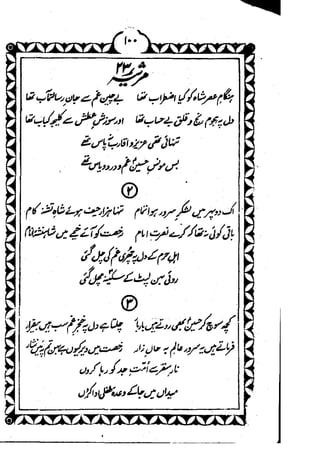 ۱۰۰
مرثیہ ۲۳
ہنگامِ عصر شاہ کو کیا اضطراب تھا بے چین غم سے جانِ رسالتمآب تھا
دل پہ ہجومِ رنج و قلق بے حساب تھا اور سوزشِ عطش سے کلیجہ کباب تھا
تنہائی تھی عزیز و اقارب نہ پاس تھے
بس مونسِ حسینؑ غم و درد و یاس تھے
۲
اک دوپہر میں لشکرِ سرور ہوا تمام تنہا ہزار حیف ہوئے شاہِ تشنہ کام
باقی کوئی نہ تھا کہ کرے نصرتِ امام رخصت کو آئے خیمے میں شاہنشہِ انام
اہلِ حرم کے دل پہ چھری غم کی چل گئی
روئی بہن لپٹ کے سکینہ مچل گئی
۳
کچھ سوچ کر حسینؑ بھی روتے ہیں بار بار چلتا ہے دل پہ خنجرِ غم سب ہیں بیقرار
فرماتے ہیں یہ سرورِ عالم بہ حالِ زار رخصت میں دیر کیوں ہے بہن تم پہ میں نثار
نارِ سقر سے امتِ جد کو رہا کروں
میداں میں جا کے وعدۂ طفلی ادا کروں